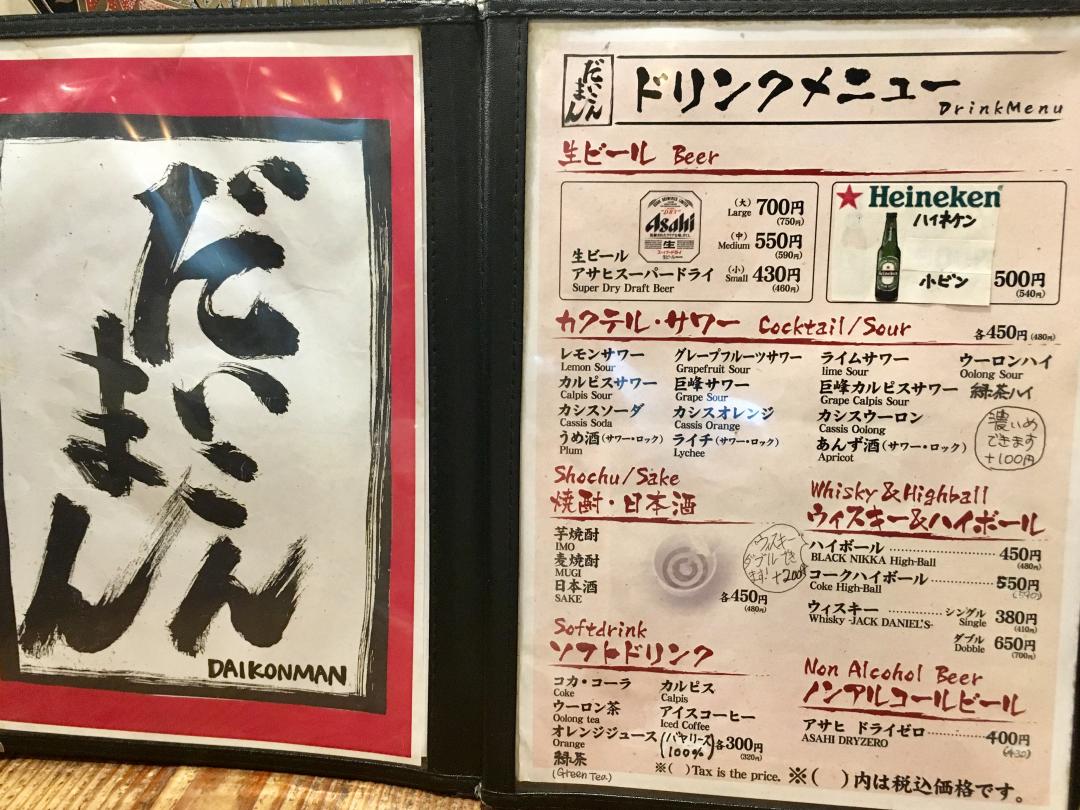 だいこん
まん
DAIKONMAN
だいこん
まん
ドリンクメニュー
DrinkMenu
生ビール Beer
Asahi
生
生ビール
アサヒスーパードライ
Super Dry Draft Beer
(大)
Large 700円
(750円)
(中)
Medium 550円
(590円)
(小)
Small 430円
(460円)
Heineken
ハイネケン
小ビン 500円
(540円)
カクテル・サワー Cocktail/Sour 各450円(480円)
レモンサワー
Lemon Sour
グレープフルーツサワー
Grapefruit Sour
ライムサワー
lime Sour
ウーロンハイ
Oolong Sour
カルピスサワー
Calpis Sour
巨峰サワー
Grape Sour
巨峰カルピスサワー
Grape Calpis Sour
緑茶ハイ
カシスソーダ
Cassis Soda
カシスオレンジ
Cassis Orange
カシスウーロン
Cassis Oolong
うめ酒(サワー・ロック)
Plum
ライチ(サワー・ロック)
Lychee
あんず酒(サワー・ロック)
Apricot
濃いめ
できます
+100円
Shochu/Sake
焼酎・日本酒
芋焼酎
IMO
麦焼酎
MUGI
日本酒
SAKE
各450円
(480円)
ウィスキー
ダブルでき
ます!+200円
Whisky&Highball
ウィスキー&ハイボール
ハイボール 450円
BLACK NIKKA High-Ball (480円)
コークハイボール 550円
Coke High-Ball
ウィスキー シングル 380円
Whisky -JACK DANIEL'S- Single (410円)
ダブル 650円
Dobble (700円)
Softdrink
ソフトドリンク
コカ・コーラ
Coke
カルピス
Calpis
ウーロン茶
Oolong tea
アイスコーヒー
Iced Coffee
オレンジジュース(バヤリース
100%)
Orange
各300円
(320円)
緑茶
(Green Tea)
Non Alcohol Beer
ノンアルコールビール
アサヒ ドライゼロ 400円
ASAHI DRYZERO (430)
※( )Tax is the price. ※( )内は税込価格です。